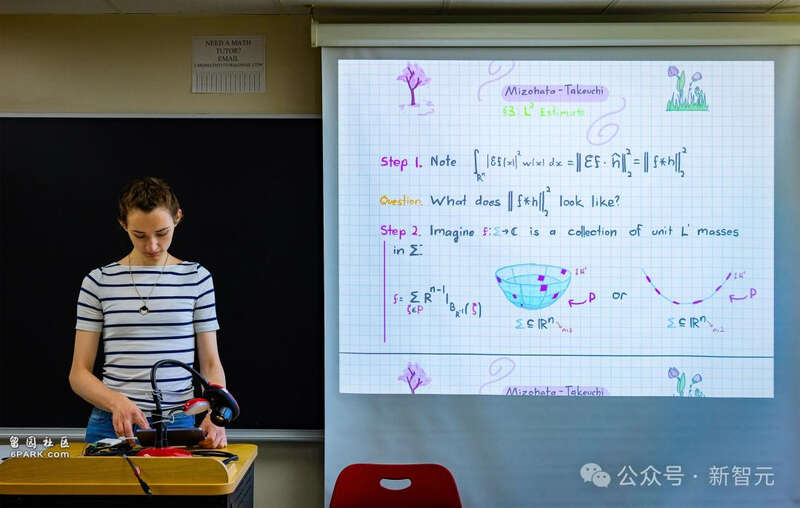 NEED A MATH
TUTOR?
EMAIL
Mizohata-Takeuchi
§3: L² Estimate
Step 1. Note ∫_{ℝⁿ} |Ef(x)|² w(x) dx = ‖Ef · ĥ‖₂² = ‖f*h‖₂²
Question. What does ‖f*h‖₂² look like?
Step 2. Imagine f: Σ→ℂ is a collection of unit L¹ masses
in Σ.
f = Σ_{ξ∈P} R^{n-1} 1_{B_{R^{-1}}(ξ)}
P or P
Σ ⊆ ℝⁿ Σ ⊆ ℝⁿ
Mizohata-Takeuchi
留园社区
6PARK.COM
公众号·新智元